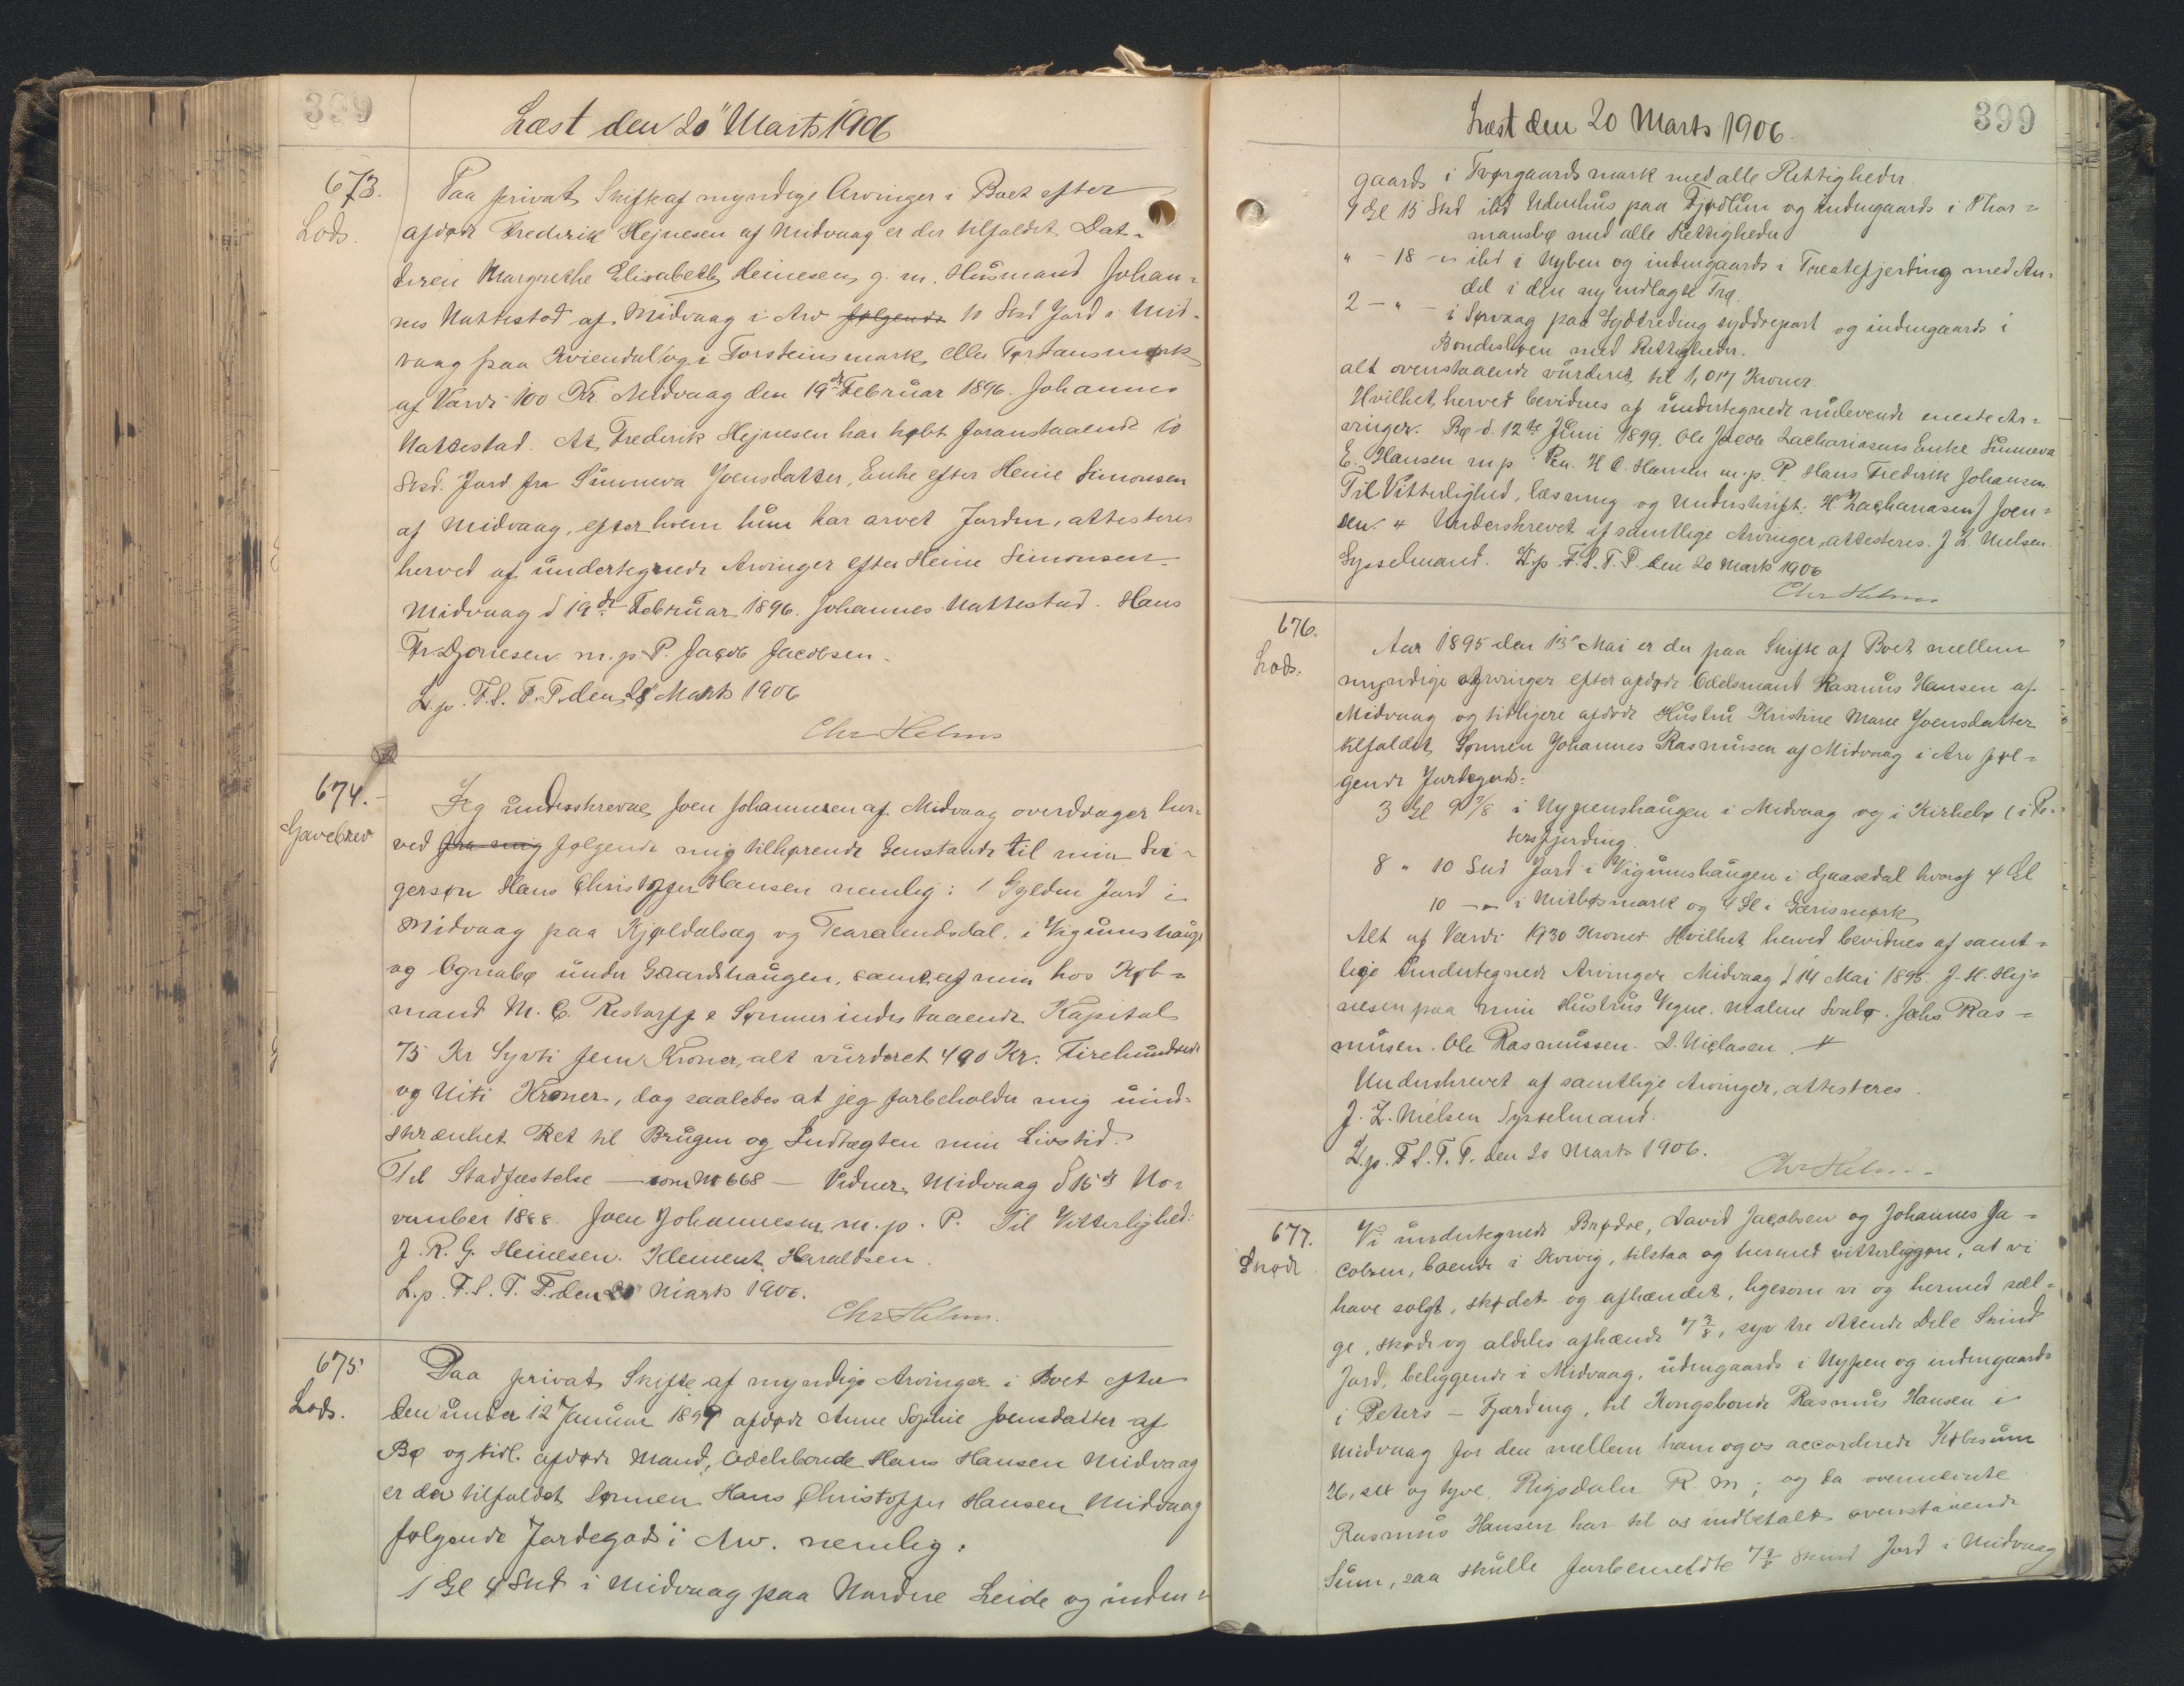 399
Læst den 20" Marts 1906
673.
Lods.
Paa privat Skifte af myndige Arvinger i Boet efter
afdøde Frederik Hejnesen af Midvaag er der tilfaldet Dat-
teren Margrethe Elisabeth Heinesen, g. m. Husmand Johan-
nes Nattestad af Midvaag i Arv følgende 10 Skd Jord i Mid-
vaag paa Kviendal og i Torsteinsmark eller Tørtansmørk
af Værdi 100 Kr. Midvaag den 19de Februar 1896. Johannes
Nattestad. At Frederik Hejnesen har købt foranstaaende 10
Skd. Jord fra Sunneva Joensdatter, Enke efter Heine Simonsen
af Midvaag, efter hvem hun har arvet Jorden, attesteres
herved af undertegnede Arvinger efter Heine Simonsen.
Midvaag d 19de Februar 1896. Johannes Nattestad. Hans
Fr. Djonesen m. p. P. Jacob Jacobsen.
L. p. F. S. T. P. den 20 Marts 1906
Chr Helms
674.
Gavebrev
Jeg underskrevne Joen Johannesen af Midvaag overdrager her-
ved fra mig følgende mig tilhørende Genstande til min Svi-
gersøn Hans Christoffer Hansen nemlig: 1 Gylden Jord i
Midvaag paa Kjøldalsæg og Tearalendsdal. i Vigumshauge
og Ognabø under Gaardshaugen, samt af min hos Køb-
mand M. C. Restorff & Sønner indestaaende Kapital
75 Kr Syvti fem Kroner, alt vurderet 490 Kr. Firehundrede
og Niti Kroner, dog saaledes at jeg forbeholder mig uind-
skrænket Ret til Brugen og Indtægten min Livstid.
Til Stadfæstelse — som No 668 — Vidner. Midvaag d 15de No-
vember 1888. Joen Johannesen m. p. P. Til Vitterlighed:
J. R. G. Heinesen. Klement Haraldsen.
L. p. F. S. T. P. den 20 Marts 1906.
Chr Helms.
675.
Lods.
Paa privat Skifte af myndige Arvinger i Boet efter
den under 12 Januar 1899 afdøde Anne Sophie Joensdatter af
Bø og tidl. afdøde Mand, Odelsbonde Hans Hansen Midvaag
er der tilfaldet Sønnen Hans Christoffer Hansen Midvaag
følgende Jordegods i Arv. nemlig:
1 Gl 4 Skd i Midvaag paa Nordre Leide og inden-
Læst den 20 Marts 1906.
399
gaards i Tvørgaardsmark med alle Rettigheder
9 Gl 15 Skd ibd Udenhus paa Fjødlum og indengaards i Thor-
mansbø med alle Rettigheder
" - 18 - ibd i Nyben og indengaards i Treatefjerding med An-
del i den ny indlagte Trø.
2 - " - i Sørvaag paa Sydtreding syddrepart og indengaards i
Bondeshøen med Rettigheder.
alt ovenstaaende vurderet til 1,017 Kroner.
Hvilket herved bevidnes af undertegnede nulevende eneste Ar-
vinger. Bø d. 12te Juni 1899. Ole Jacob Zachariasens Enke Sunneva
E. Hansen m p Pen. H C. Hansen m. p. P. Hans Frederik Johansen.
Til Vitterlighed, læsning og Underskrift: H. Zachariasen J Joen-
sen. # Underskrevet af samtlige Arvinger, attesteres. J Z. Nielsen.
Sysselmand. L. p. F. S. T. P. den 20 Marts 1906
Chr Helms
676.
Lods.
Aar 1895 den 13" Mai er der paa Skifte af Boet mellem
myndige Arvinger efter afdøde Odelsmand Rasmus Hansen af
Midvaag og tidligere afdøde Hustru Kristine Marie Joensdatter
tilfaldet Sønnen Johannes Rasmusen af Midvaag i Arv føl-
gende Jordegods:
3 Gl 9 7/8 i Nypenshaugen i Midvaag og i Kirkebø (i Pe-
tersfjerding.
8 " 10 Skd Jord i Vigumshaugen i Gaasedal hvoraf 4 Gl
10 — " i Mitbøsmark og 4 Gl i Gærismørk
Alt af Værdi 1930 Kroner Hvilket herved bevidnes af samt-
lige undertegnede Arvinger. Midvaag d 14 Mai 1895. J. H. Hej-
nesen paa min Hustrus Vegne. Malene Svabo. Johs Ras-
musen. Ole Rasmussen. D. Niclasen. #
Underskrevet af samtlige Arvinger, attesteres.
J. Z. Nielsen Sysselmand.
L. p. F. S. T. P. den 20 Marts 1906.
Chr Helms
677.
Skøde
Vi undertegnede Brødre, David Jacobsen og Johannes Ja-
cobsen, boende i Kvivig, tilstaa og hermed vitterliggøre, at vi
have solgt, skødet og afhændet, ligesom vi og hermed sæl-
ge, skøde og aldeles afhænde 7 3/8, syv tre ottende Dele Skind
Jord, beliggende i Midvaag, udengaards i Nypen og indengaards
i Peters - Fjærding, til Kongsbonde Rasmus Hansen i
Midvaag for den mellem ham og os accorderede Købesum
26, sex og tyve, Rigsdaler R. M; og da ovennævnte
Rasmus Hansen har til os indbetalt ovenstaaende
Sum, saa skulle forbemeldte 7 3/8 Skind Jord i Midvaag